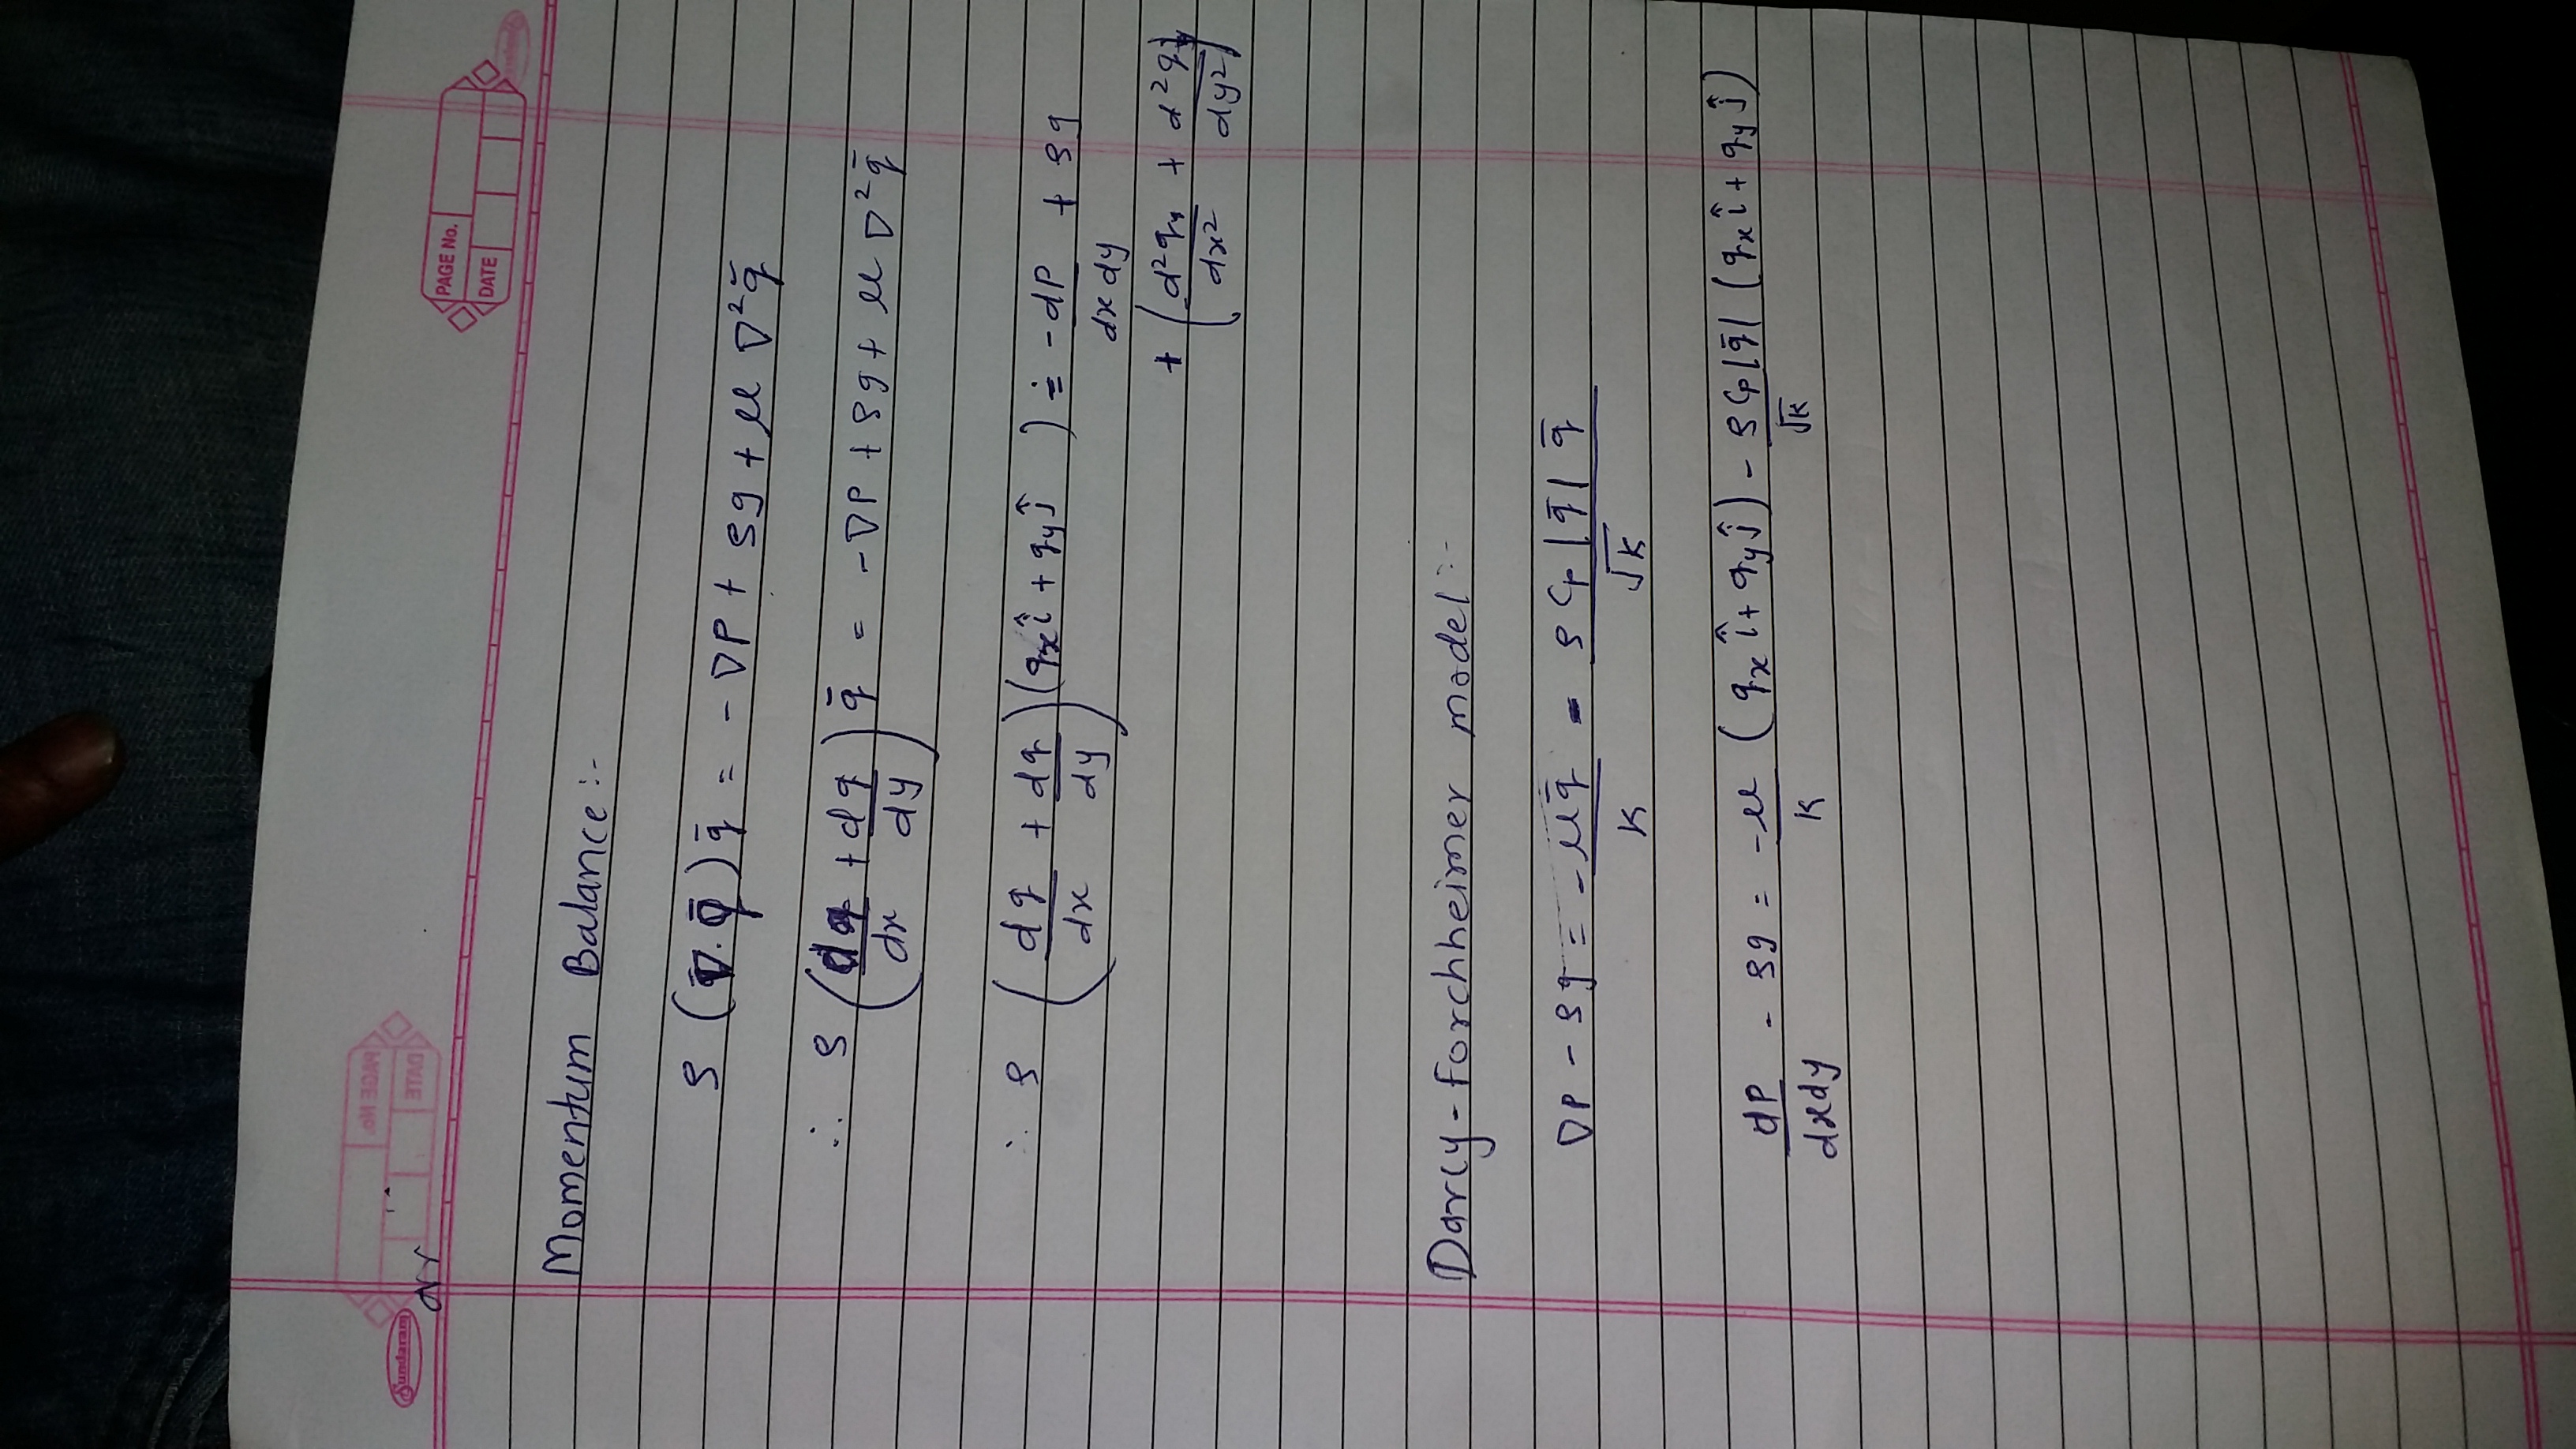 Sundaram
PAGE No.
DATE
PAGE No.
DATE
Momentum Balance :-
ρ (∇. q̄) q̄ = - ∇P + ρg + μ ∇²q̄
∴ ρ (dq/dx + dq/dy) q̄ = - ∇P + ρg + μ ∇²q̄
∴ ρ (dq/dx + dq/dy) (qx î + qy ĵ) = - dP/dxdy + ρg
+ (d²qx/dx² + d²qy/dy²)
Darcy-Forchheimer model :-
∇P - ρg = - μq̄/K - ρ CF |q̄| q̄/√K
dP/dxdy - ρg = - μ/K (qx î + qy ĵ) - ρ CF |q̄|/√K (qx î + qy ĵ)